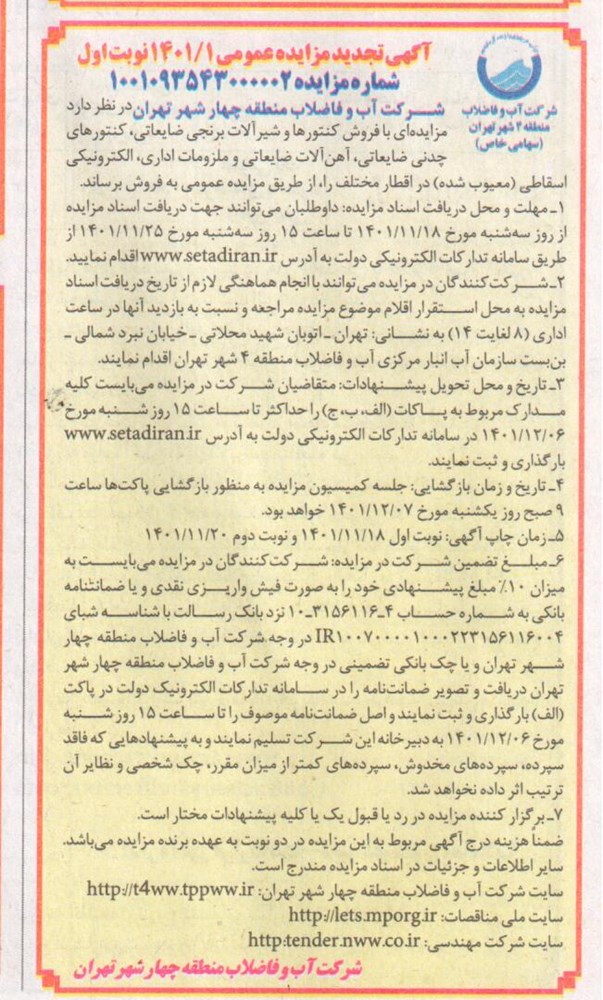 آگهی تجدید مزایده عمومی ۱۴۰۱/۱ نوبت اول
شماره مزایده ۱۰۰۱۰۹۳۵۴۳۰۰۰۰۰۲
شرکت آب و فاضلاب
منطقه ۴ شهر تهران
(سهامی خاص)
شرکت آب و فاضلاب منطقه چهار شهر تهران در نظر دارد
مزایده‌ای با فروش کنتورها و شیرآلات برنجی ضایعاتی، کنتورهای
چدنی ضایعاتی، آهن‌آلات ضایعاتی و ملزومات اداری، الکترونیکی
اسقاطی (معیوب شده) در اقطار مختلف را، از طریق مزایده عمومی به فروش برساند.
۱ـ مهلت و محل دریافت اسناد مزایده: داوطلبان می‌توانند جهت دریافت اسناد مزایده
از روز سه‌شنبه مورخ ۱۴۰۱/۱۱/۱۸ تا ساعت ۱۵ روز سه‌شنبه مورخ ۱۴۰۱/۱۱/۲۵ از
طریق سامانه تدارکات الکترونیکی دولت به آدرس www.setadiran.ir اقدام نمایند.
۲ـ شرکت‌کنندگان در مزایده می‌توانند با انجام هماهنگی لازم از تاریخ دریافت اسناد
مزایده به محل استقرار اقلام موضوع مزایده مراجعه و نسبت به بازدید آنها در ساعت
اداری (۸ لغایت ۱۴) به نشانی: تهران ـ اتوبان شهید محلاتی ـ خیابان نبرد شمالی ـ
بن‌بست سازمان آب انبار مرکزی آب و فاضلاب منطقه ۴ شهر تهران اقدام نمایند.
۳ـ تاریخ و محل تحویل پیشنهادات: متقاضیان شرکت در مزایده می‌بایست کلیه
مدارک مربوط به پاکات (الف، ب، ج) را حداکثر تا ساعت ۱۵ روز شنبه مورخ
۱۴۰۱/۱۲/۰۶ در سامانه تدارکات الکترونیکی دولت به آدرس www.setadiran.ir
بارگذاری و ثبت نمایند.
۴ـ تاریخ و زمان بازگشایی: جلسه کمیسیون مزایده به منظور بازگشایی پاکت‌ها ساعت
۹ صبح روز یکشنبه مورخ ۱۴۰۱/۱۲/۰۷ خواهد بود.
۵ـ زمان چاپ آگهی: نوبت اول ۱۴۰۱/۱۱/۱۸ و نوبت دوم ۱۴۰۱/۱۱/۲۰
۶ـ مبلغ تضمین شرکت در مزایده: شرکت‌کنندگان در مزایده می‌بایست به
میزان ۱۰٪ مبلغ پیشنهادی خود را به صورت فیش واریزی نقدی و یا ضمانتنامه
بانکی به شماره حساب ۴ـ۳۱۵۶۱۱۶ـ۱۰ نزد بانک رسالت با شناسه شبای
IR۱۰۰۷۰۰۰۰۱۰۰۰۲۲۳۱۵۶۱۱۶۰۰۴ در وجه شرکت آب و فاضلاب منطقه چهار
شهر تهران و یا چک بانکی تضمینی در وجه شرکت آب و فاضلاب منطقه چهار شهر
تهران دریافت و تصویر ضمانت‌نامه را در سامانه تدارکات الکترونیک دولت در پاکت
(الف) بارگذاری و ثبت نمایند و اصل ضمانت‌نامه موصوف را تا ساعت ۱۵ روز شنبه
مورخ ۱۴۰۱/۱۲/۰۶ به دبیرخانه این شرکت تسلیم نمایند و به پیشنهادهایی که فاقد
سپرده، سپرده‌های مخدوش، سپرده‌های کمتر از میزان مقرر، چک شخصی و نظایر آن
ترتیب اثر داده نخواهد شد.
۷ـ برگزار کننده مزایده در رد یا قبول یک یا کلیه پیشنهادات مختار است.
ضمناً هزینه درج آگهی مربوط به این مزایده در دو نوبت به عهده برنده مزایده می‌باشد.
سایر اطلاعات و جزئیات در اسناد مزایده مندرج است.
سایت شرکت آب و فاضلاب منطقه چهار شهر تهران: http://t4ww.tppww.ir
سایت ملی مناقصات: http://lets.mporg.ir
سایت شرکت مهندسی: http:tender.nww.co.ir
شرکت آب و فاضلاب منطقه چهار شهر تهران